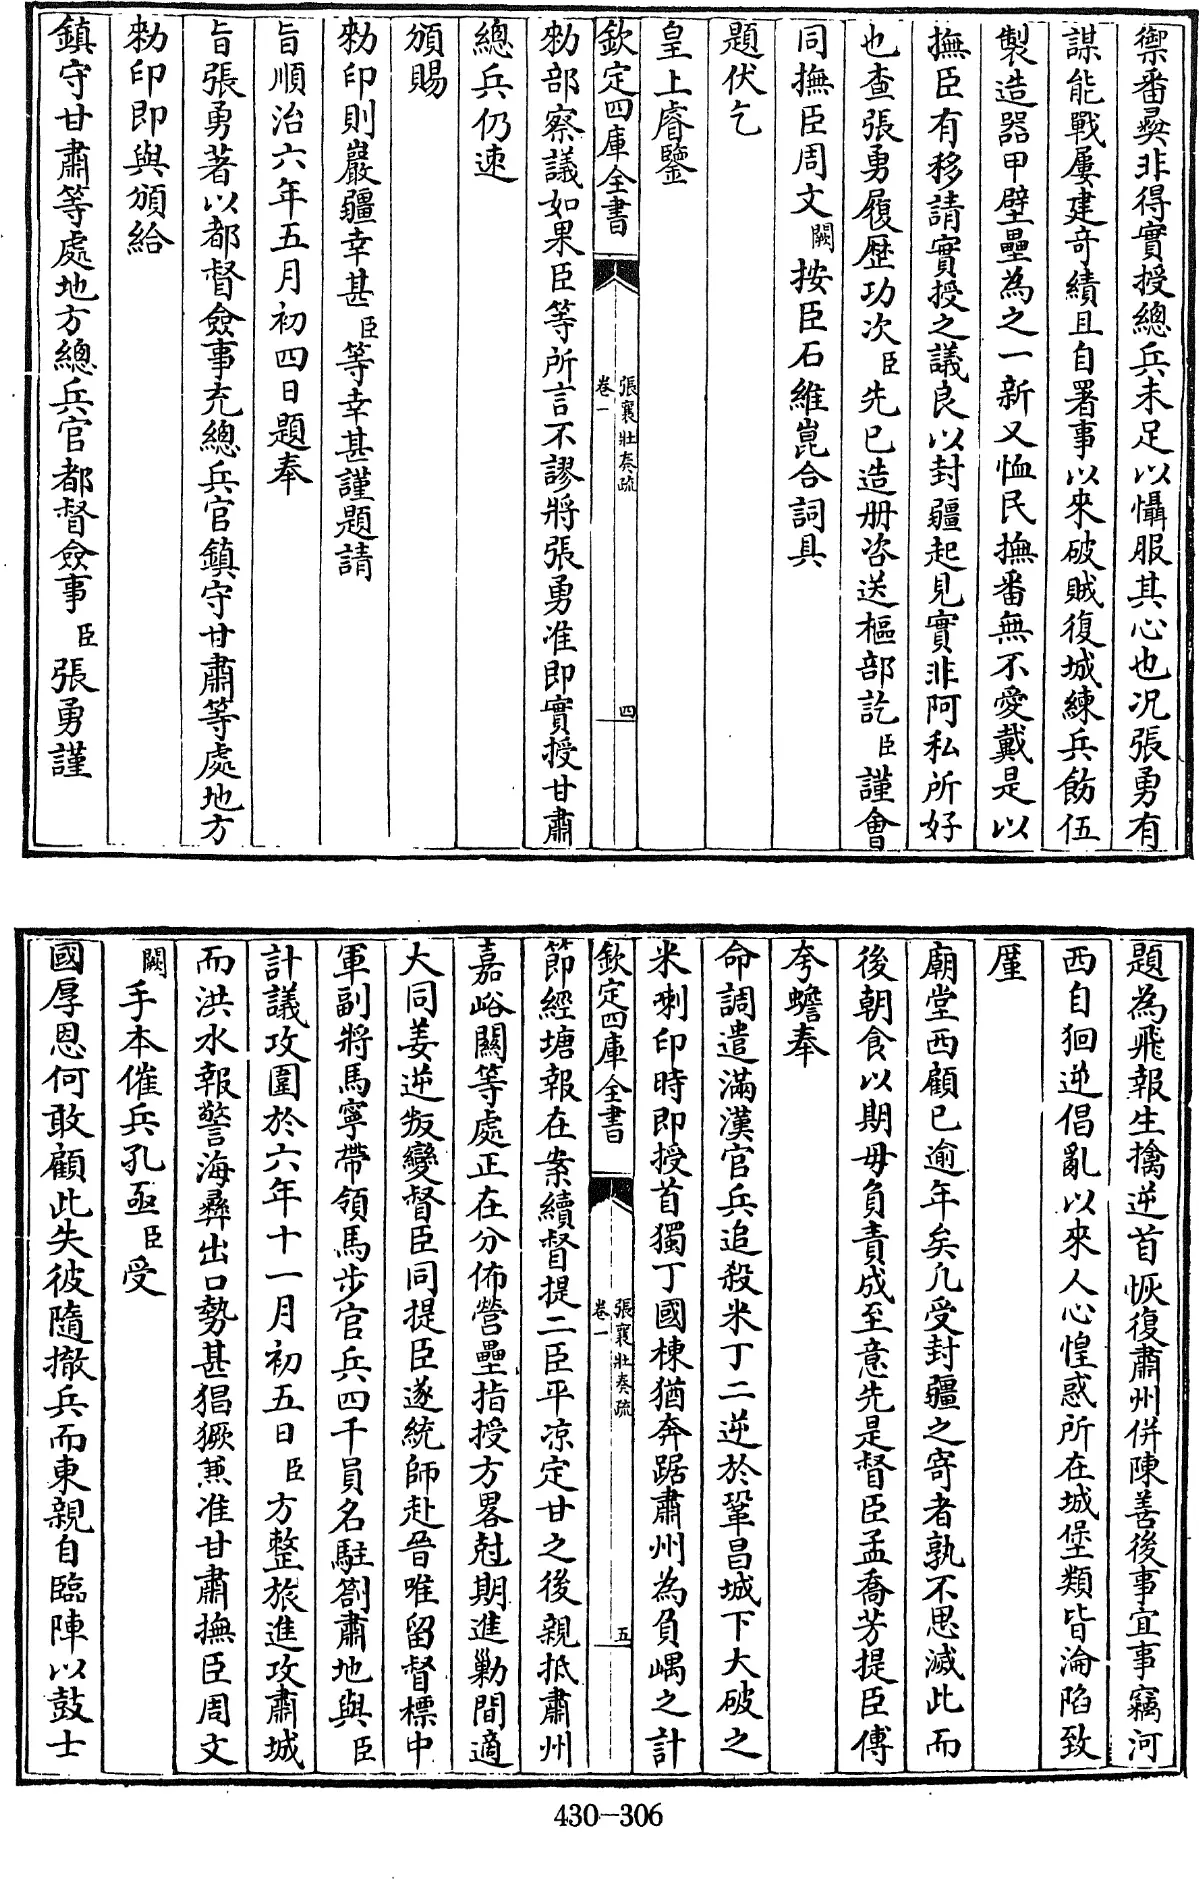 禦番彛非得實授總兵未足以懾服其心也况張勇有
謀能戰屢建竒績且自署事以來破賊復城練兵飭伍
製造器甲壁壘為之一新又恤民撫番無不愛戴是以
撫臣有移請實授之議良以封疆起見實非阿私所好
也查張勇履歴功次臣先已造册咨送樞部訖臣謹會
同撫臣周文闕按臣石維崑合詞具
題伏乞
皇上睿鑒
欽定四庫全書
張襄壯奏疏
卷一
四
勅部察議如果臣等所言不謬將張勇准即實授甘肅
總兵仍速
頒賜
勅印則巖疆幸甚臣等幸甚謹題請
旨順治六年五月初四日題奉
旨張勇著以都督僉事充總兵官鎮守甘肅等處地方
勅印即與頒給
鎮守甘肅等處地方總兵官都督僉事臣張勇謹
題為飛報生擒逆首恢復肅州併陳善後事宜事竊河
西自狪逆倡亂以來人心惶惑所在城堡類皆淪陷致
厪
廟堂西顧已逾年矣凡受封疆之寄者孰不思滅此而
後朝食以期毋負責成至意先是督臣孟喬芳提臣傅
夸蟾奉
命調遣滿漢官兵追殺米丁二逆於鞏昌城下大破之
米喇印時即授首獨丁國棟猶奔踞肅州為負嵎之計
欽定四庫全書
張襄壯奏疏
卷一
五
節經塘報在案續督提二臣平凉定甘之後親抵肅州
嘉峪關等處正在分佈營壘指授方畧尅期進勦間適
大同姜逆叛變督臣同提臣遂統師赴晉唯留督標中
軍副將馬寧帶領馬步官兵四千員名駐劄肅地與臣
計議攻圍於六年十一月初五日臣方整旅進攻肅城
而洪水報警海彝出口勢甚猖獗兼准甘肅撫臣周文
闕手本催兵孔亟臣受
國厚恩何敢顧此失彼隨撤兵而東親自臨陣以鼓士
430-306